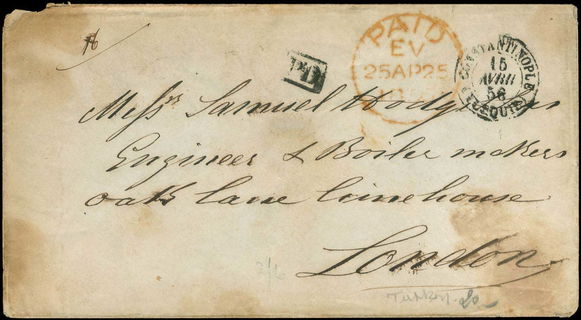 PAID
EV
25AP25
CONSTANTINOPLE
15
AVRIL
56
TURQUIE
P.P.
Messrs Samuel Hodge
Engineer & Boiler makers
oak lane Limehouse
London
2/6
Turkey